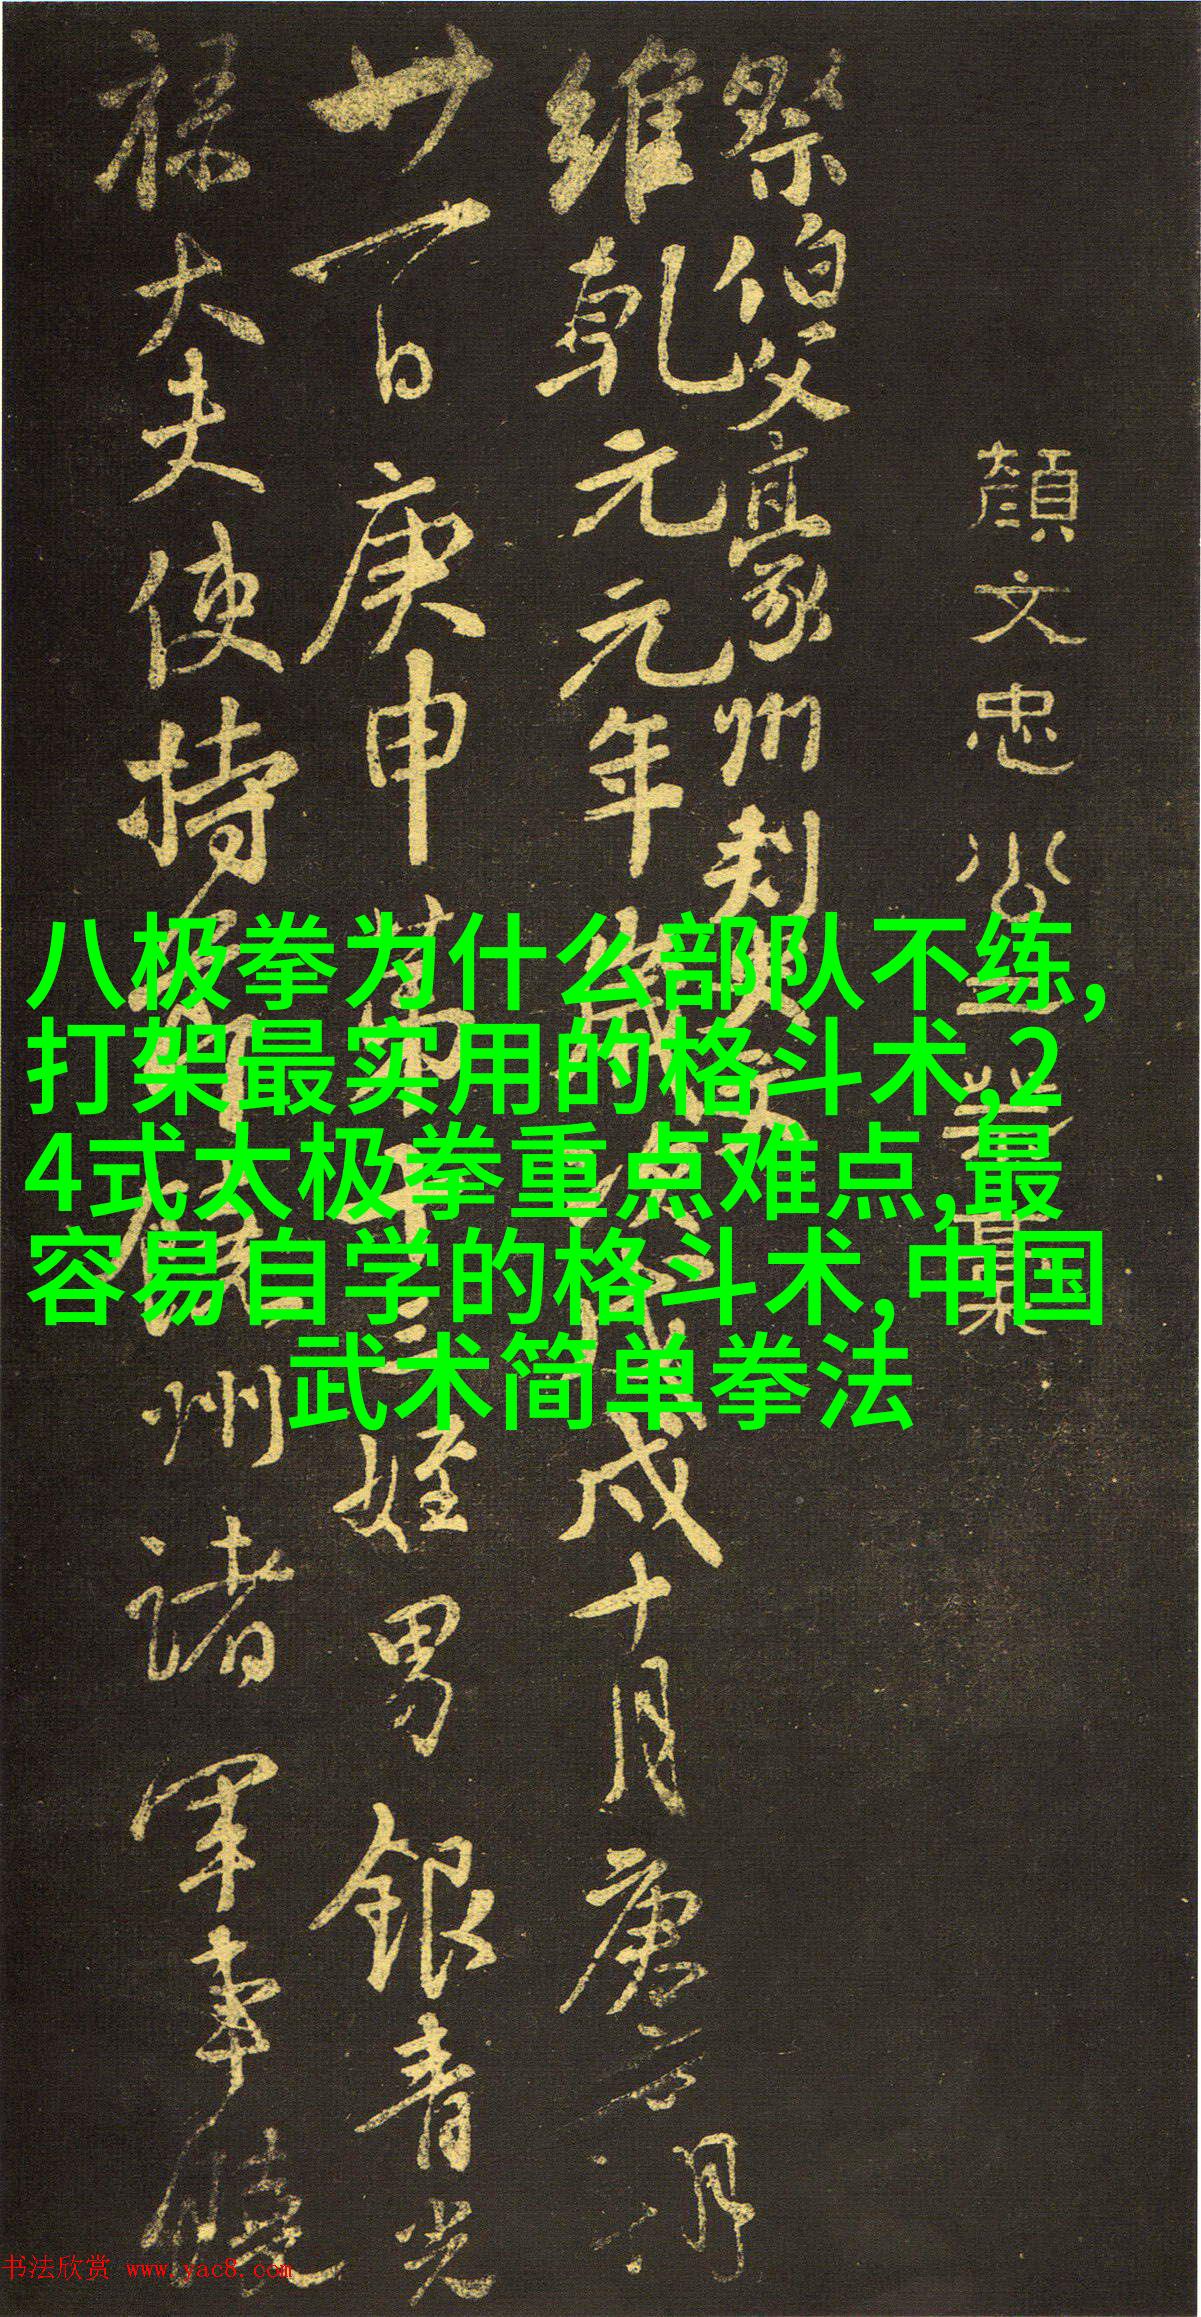 顏文忠公
祭伯父豪州刺史
維乾元元年歲次戊戌十月庚子朔
廿一日庚申第十三姪男銀青光
祿大夫使持節饒州諸軍事饒
八极拳为什么部队不练,
打架最实用的格斗术,2
4式太极拳重点难点,最
容易自学的格斗术,中国
武术简单拳法
书法欣赏 www.yac8.com